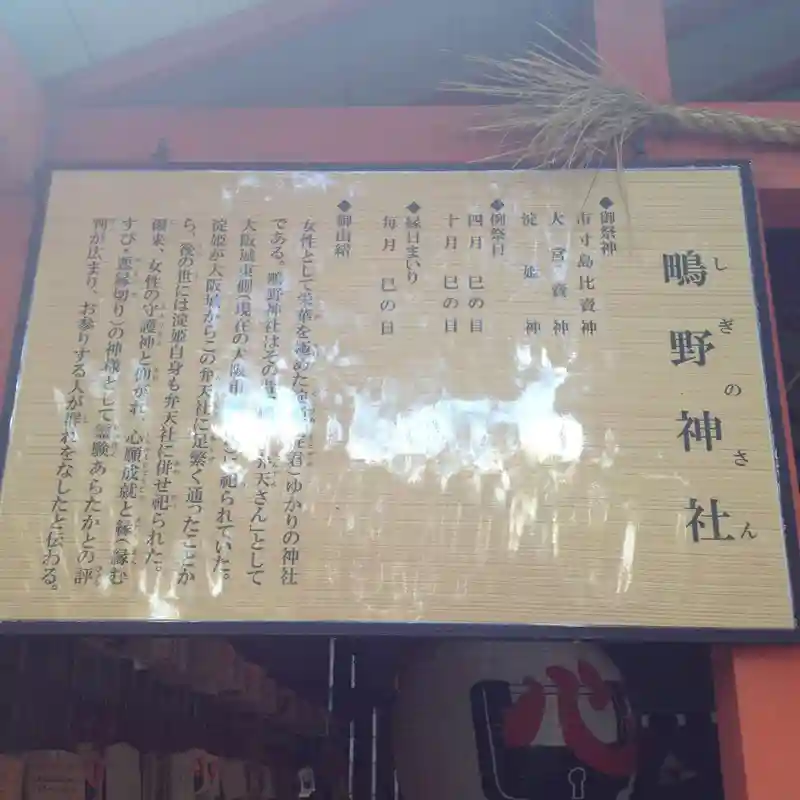 鴫野神社
しぎのさん
◆御祭神
市寸島比賣神
大宮賣神
淀姫神
◆例祭日
四月 巳の日
十月 巳の日
◆縁日まいり
毎月 巳の日
◆御由緒
女性として栄華を極めた君)ゆかりの神社
である。鴫野神社はその昔弁天さん」として
大阪城東側(現在の大阪市に祀られていた。
淀姫が大阪城からこの弁天社に足繁く通ったことか
ら、後の世には淀姫自身も弁天社に併せ祀られた。
爾来、女性の守護神と仰がれ、心願成就と縁(縁む
すび・悪縁切り)の神様として霊験あらたかとの評
判が広まり、お参りする人が群れをなしたと伝わる。
心